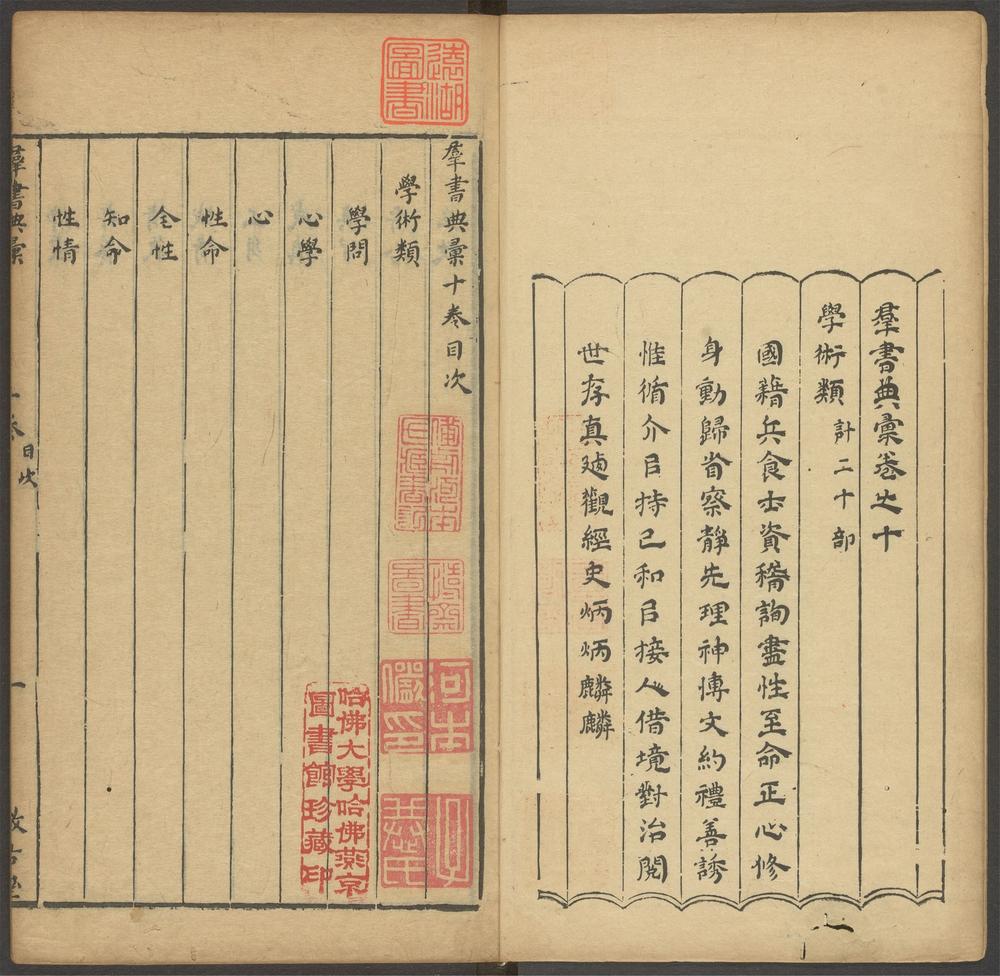 羣書典彙卷之十
學術類 計二十部
國籍兵食士資稽詢盡性至命正心修
身動歸省察靜先理神博文約禮善誘
惟循介㠯持己和㠯接人借境對治閱
世存真廸觀經史炳炳麟麟
遠湖圖書
羣書典彙十卷目次
學術類
學問
心學
心
性命
仝性
知命
性情
羣書典彙
十卷
目次
一
哈佛大學哈佛燕京
圖書館珍藏印